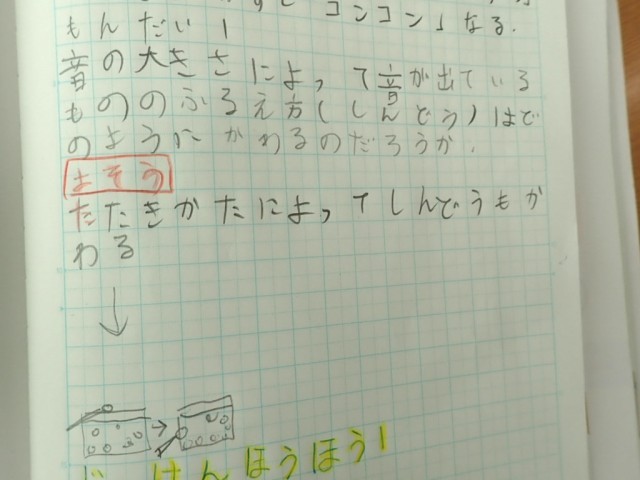 コンコン」なる.
もんだい1
音の大きさによって音が出ている
もののふるえ方(しんどう)はど
のようにかわるのだろうか.
よそう
たたきかたによってしんどうもか
わる
じっけんほうほう1